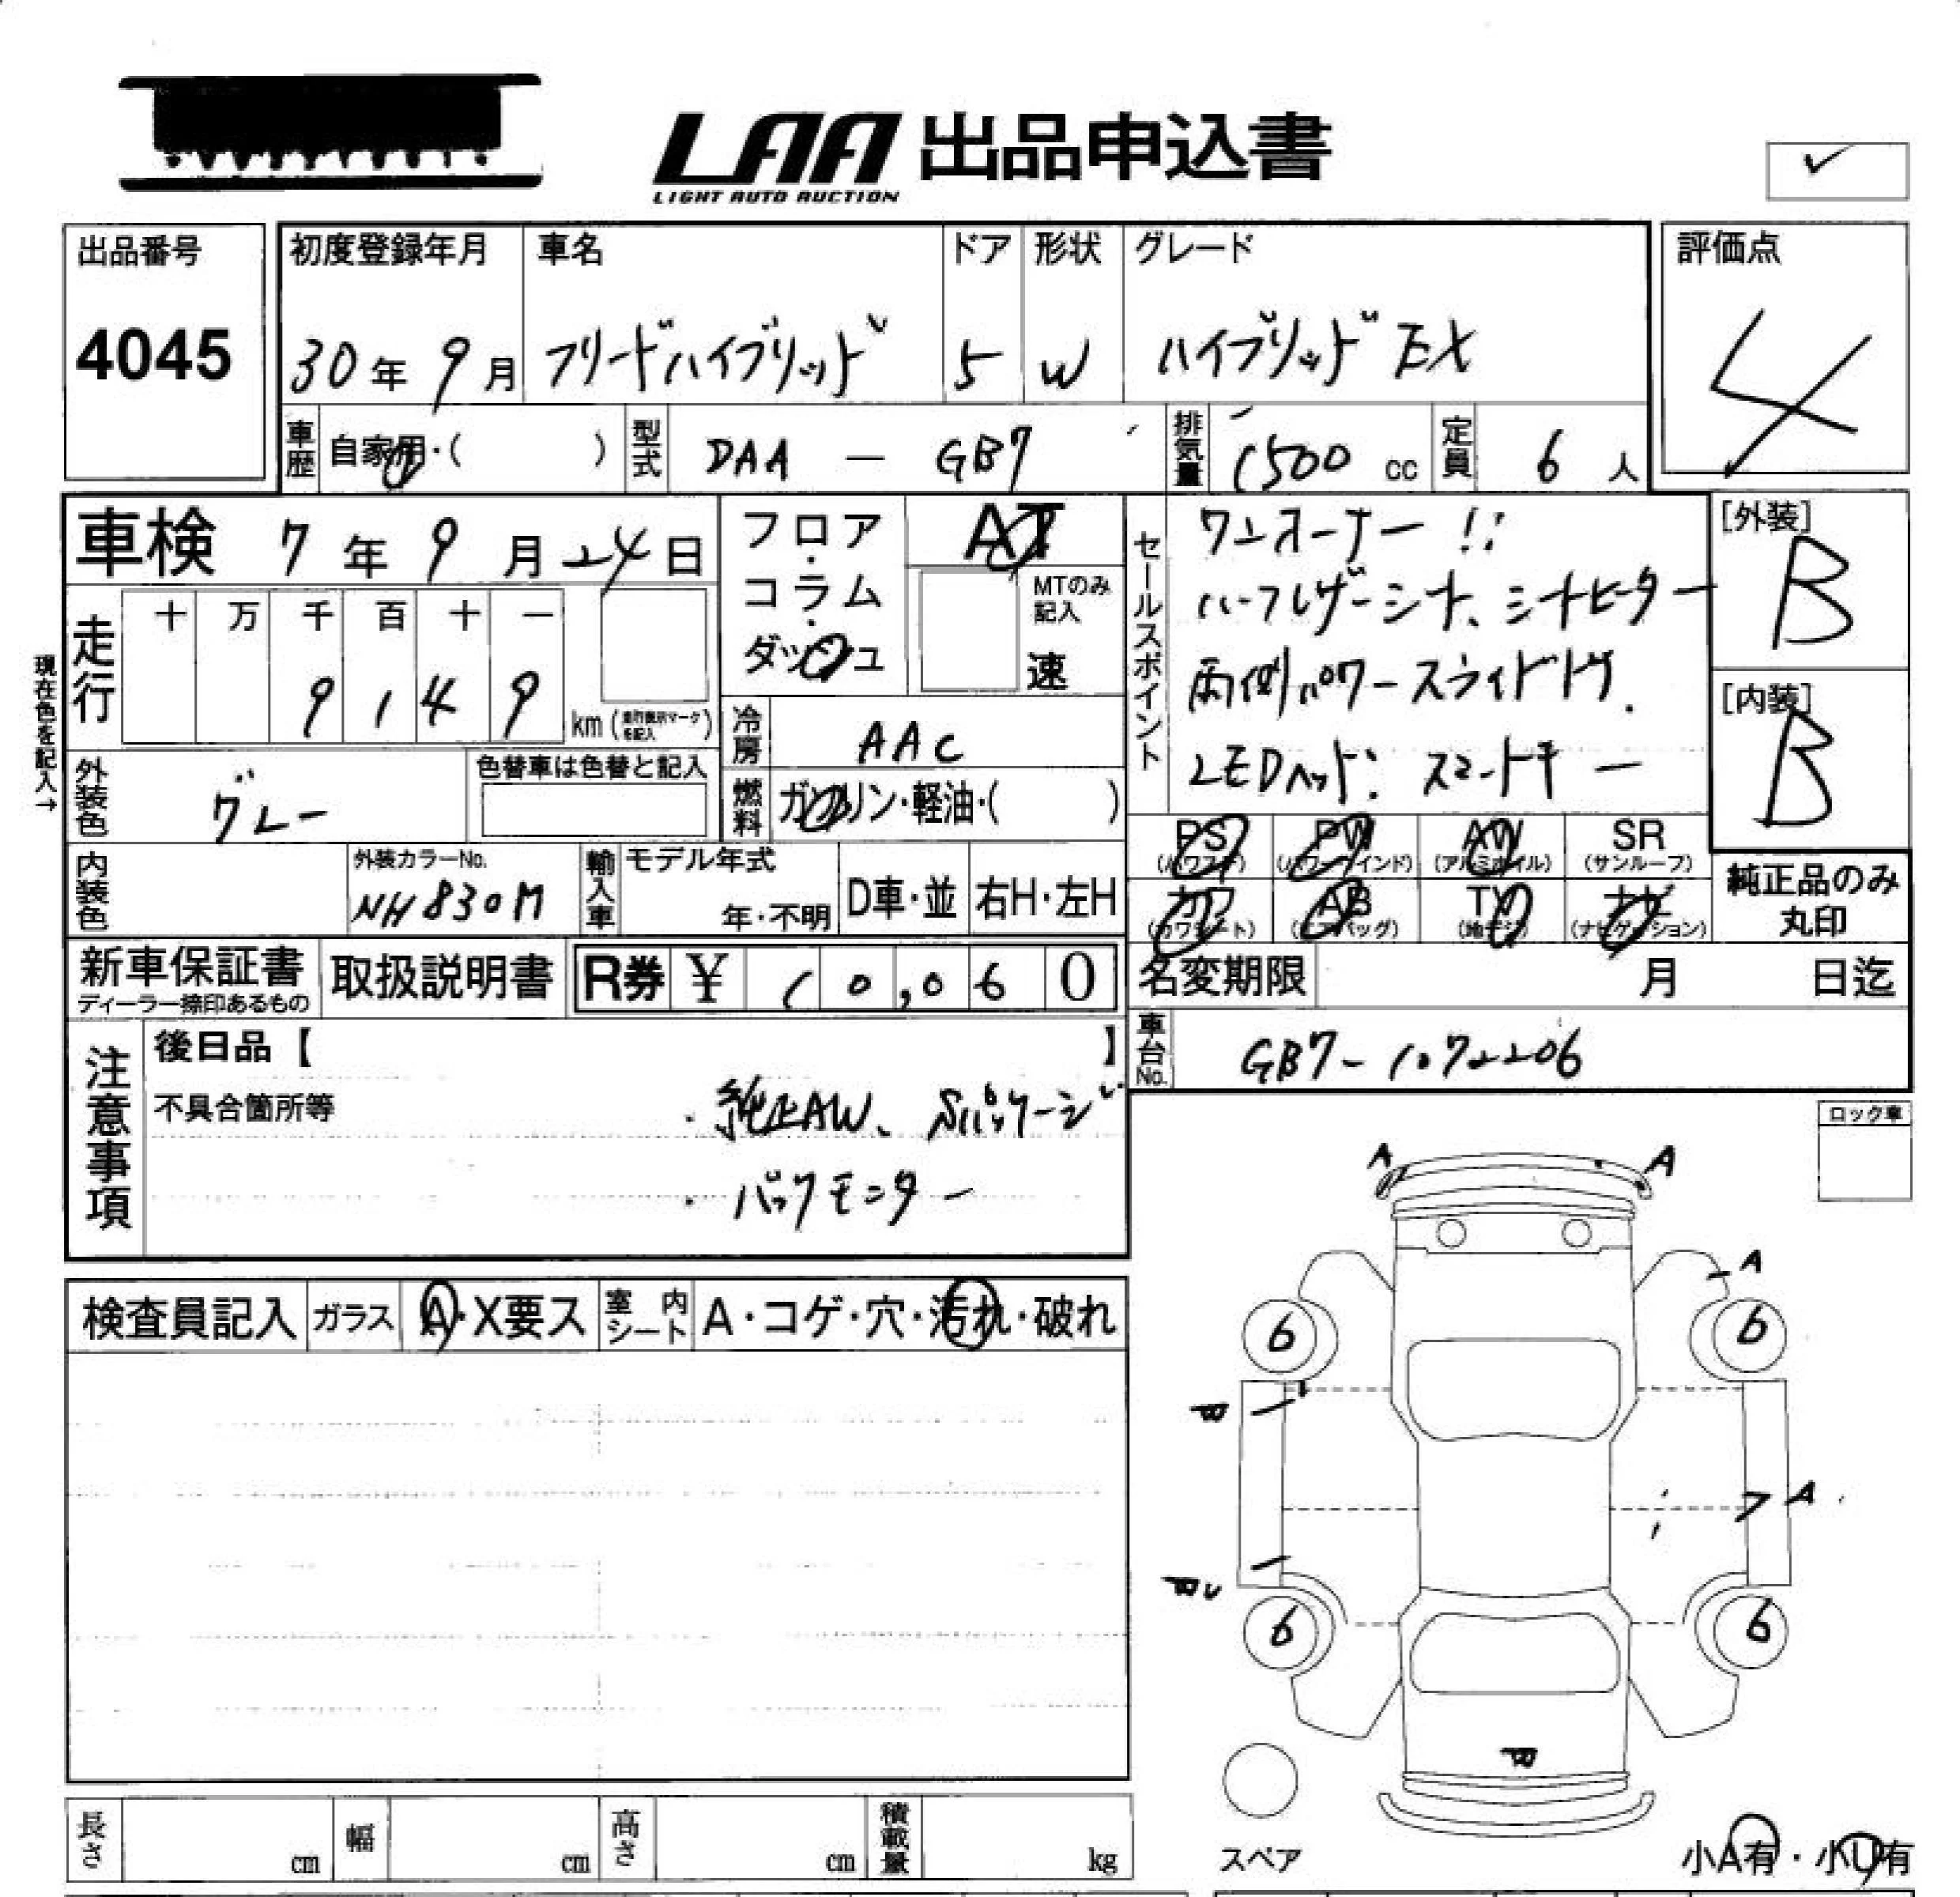 LAA 出品申込書
LIGHT AUTO AUCTION
出品番号 初度登録年月 車名 ドア 形状 グレード 評価点
4045 30年 9月 フリードハイブリッド 5 W ハイブリッド EX 4
車歴 自家用・( ) 型式 DAA — GB7 排気量 1500 cc 定員 6 人
車検 7年 9月 24日 フロア・コラム・ダッシュ AT セールスポイント ワンオーナー!! [外装]
B
MTのみ記入 速
ハーフレザーシート、シートヒーター
走行 十 万 千 百 十 一
9 1 4 9 km (走行表示マークを記入)
両側パワースライドドア.
[内装]
B
現在色を記入→
冷房 AAC
LEDヘッド: スマートキー
外装色 グレー 色替車は色替と記入
燃料 ガソリン・軽油・( )
PS (パワステ) PW (パワーウインド) AW (アルミホイル) SR (サンルーフ)
内装色 外装カラーNo. NH830M 輸入車 モデル年式 年・不明 D車・並 右H・左H
カワ (カワシート) AB (エアバッグ) TV (地デジ) ナビ (ナビゲーション) 純正品のみ丸印
新車保証書 ディーラー捺印あるもの 取扱説明書 R券 ¥ 10,060 名変期限 月 日迄
注意事項 後日品【 】 車台No. GB7-1072206
不具合箇所等 ・純正AW、Sパッケージ
・バックモニター
ロック車
A A
A
検査員記入 ガラス A・X要ス 室内シート A・コゲ・穴・汚れ・破れ
6 6
A
6 6
長さ cm 幅 cm 高さ cm 積載量 kg
スペア 小A有・小U有